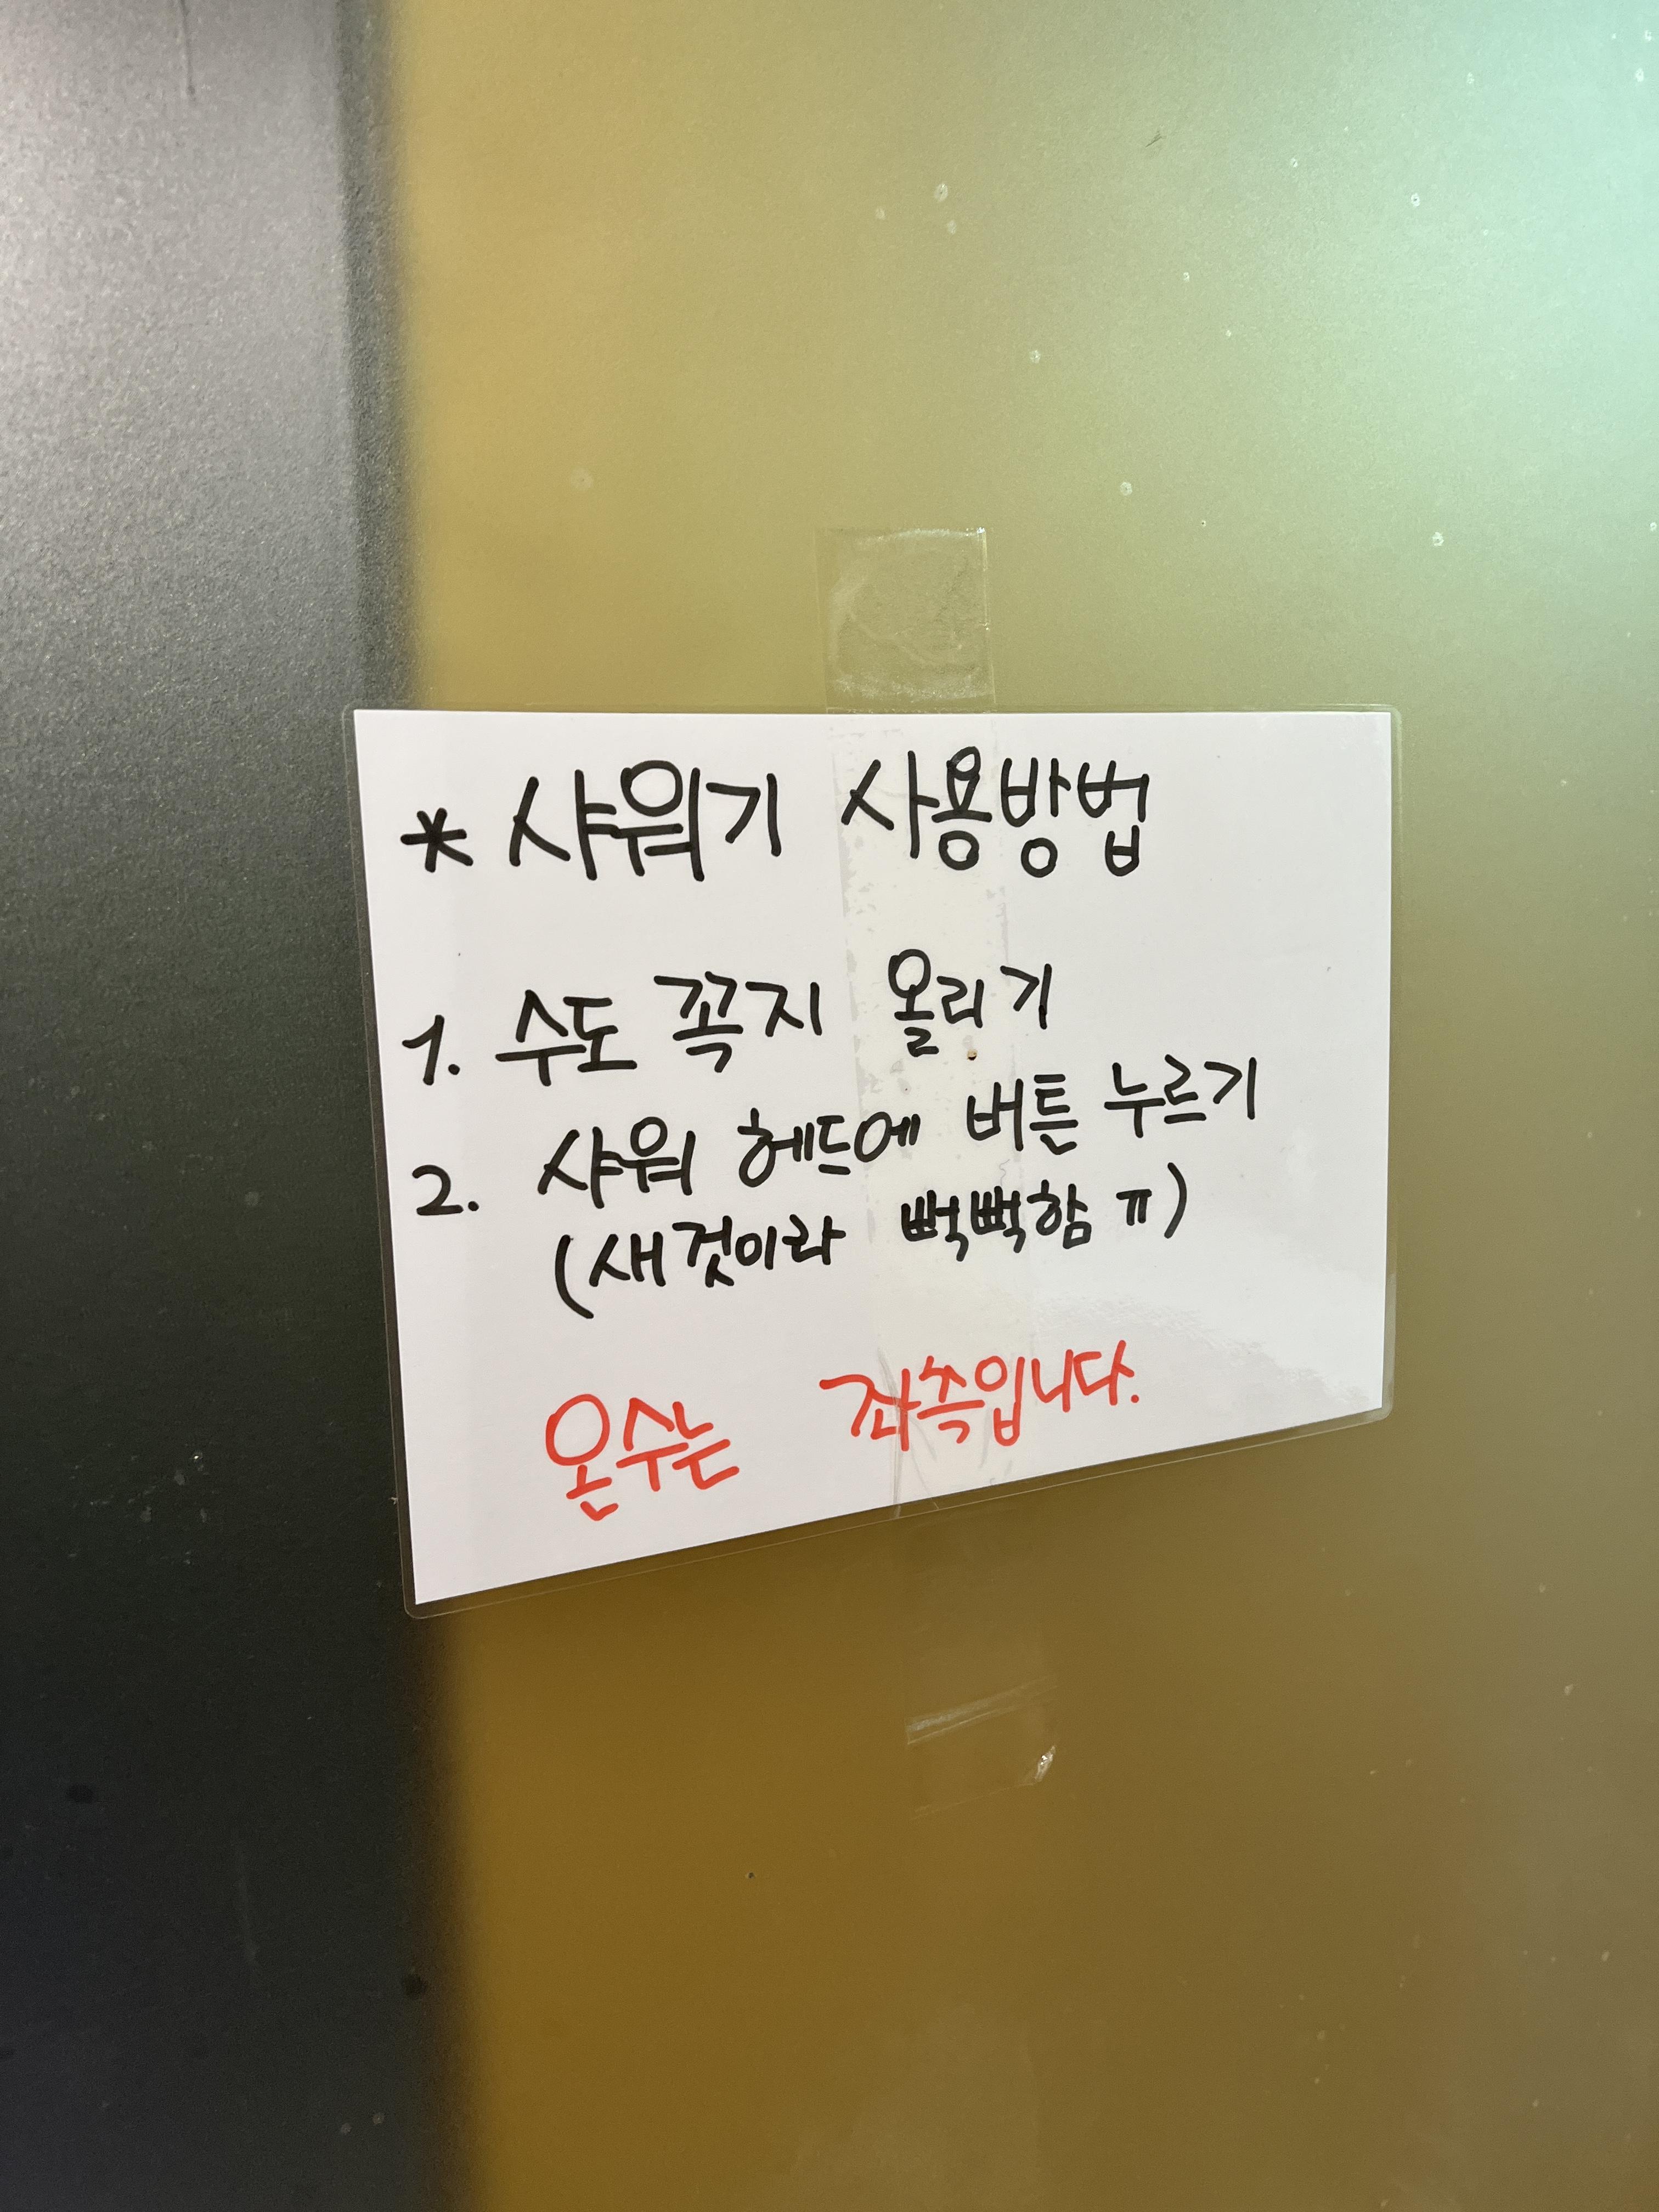 * 샤워기 사용방법
1. 수도 꼭지 올리기
2. 샤워 헤드에 버튼 누르기
(새것이라 뻑뻑함 ㅠ)
온수는 좌측입니다.